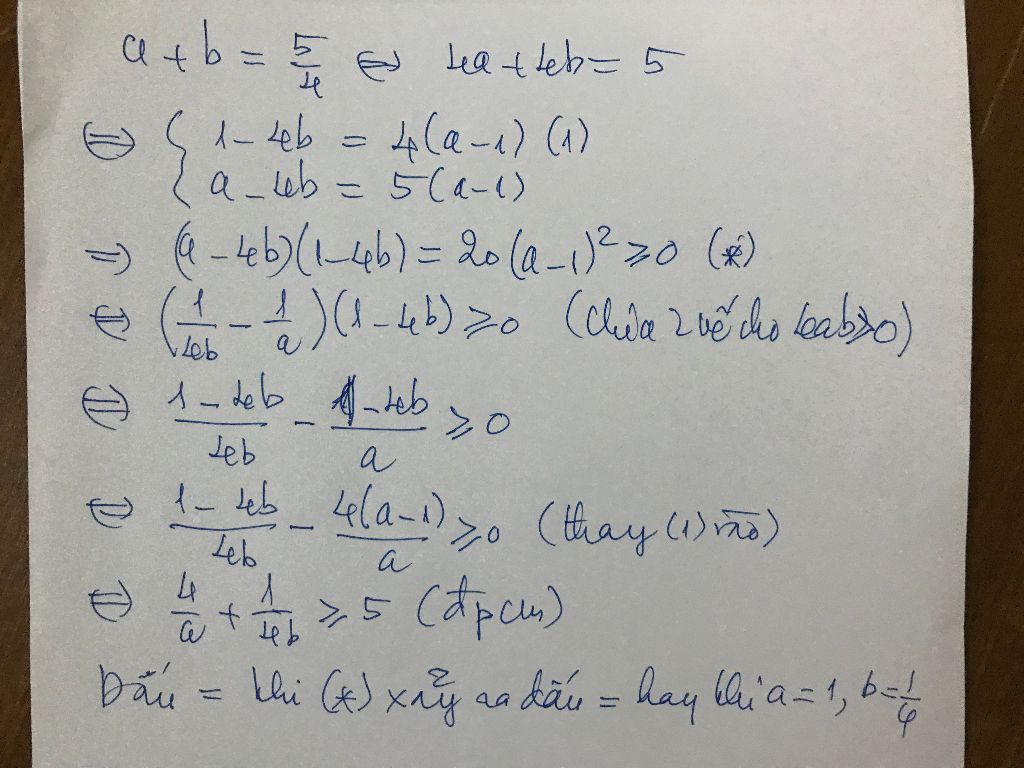 a + b = 5/4 ⇔ 4a + 4b = 5
⇔ { 1 - 4b = 4(a - 1) (1)
a - 4b = 5(a - 1)
⇒ (a - 4b)(1 - 4b) = 20(a - 1)² ≥ 0 (*)
⇔ (1/4b - 1/a)(1 - 4b) ≥ 0 (chia 2 vế cho 4ab>0)
⇔ (1 - 4b)/4b - (1 - 4b)/a ≥ 0
⇔ (1 - 4b)/4b - 4(a - 1)/a ≥ 0 (thay (1) vào)
⇔ 4/a + 1/4b ≥ 5 (đpcm)
Dấu = khi (*) xảy ra dấu = hay khi a = 1, b = 1/4